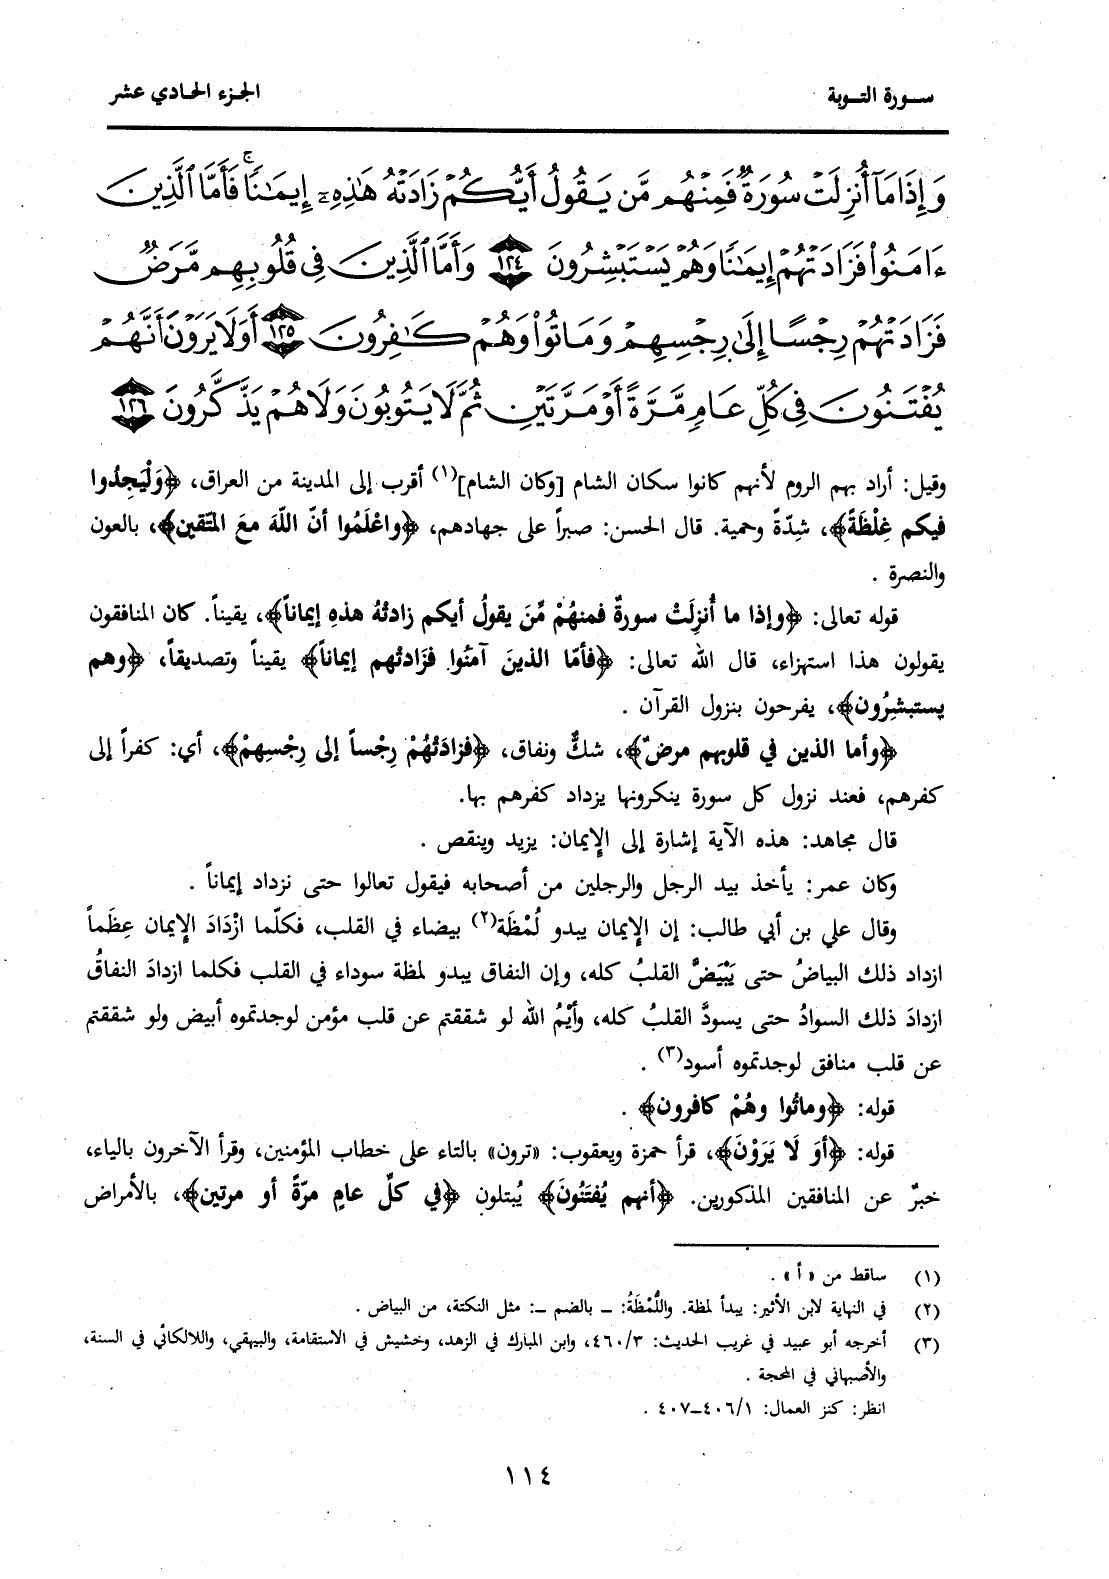 سورة التوبة
الجزء الحادي عشر
وَإِذَا مَآ أُنزِلَتۡ سُورَةٞ فَمِنۡهُم مَّن يَقُولُ أَيُّكُمۡ زَادَتۡهُ هَٰذِهِۦٓ إِيمَٰنٗاۚ فَأَمَّا ٱلَّذِينَ
ءَامَنُواْ فَزَادَتۡهُمۡ إِيمَٰنٗا وَهُمۡ يَسۡتَبۡشِرُونَ ١٢٤ وَأَمَّا ٱلَّذِينَ فِي قُلُوبِهِم مَّرَضٞ
فَزَادَتۡهُمۡ رِجۡسًا إِلَىٰ رِجۡسِهِمۡ وَمَاتُواْ وَهُمۡ كَٰفِرُونَ ١٢٥ أَوَلَا يَرَوۡنَ أَنَّهُمۡ
يُفۡتَنُونَ فِي كُلِّ عَامٖ مَّرَّةً أَوۡ مَرَّتَيۡنِ ثُمَّ لَا يَتُوبُونَ وَلَا هُمۡ يَذَّكَّرُونَ ١٢٦
وقيل: أراد بهم الروم لأنهم كانوا سكان الشام [وكان الشام](١) أقرب إلى المدينة من العراق، ﴿وَلْيَجِدُوا
فيكم غِلْظَةً﴾، شِدّةً وحمية. قال الحسن: صبراً على جهادهم، ﴿واعْلَمُوا أنّ اللّهَ معَ المتّقين﴾، بالعون
والنصرة .
قوله تعالى: ﴿وإذا ما أُنزِلَتْ سورةٌ فمنهُمْ مِّنَ يقولُ أيكم زادتْهُ هذهِ إيماناً﴾، يقيناً. كان المنافقون
يقولون هذا استهزاء، قال الله تعالى: ﴿فأمّا الذينَ آمنُوا فزَادتْهم إيماناً﴾ يقيناً وتصديقاً، ﴿وهم
يستبشِرُون﴾، يفرحون بنزول القرآن .
﴿وأما الذين في قلوبهم مرضٌ﴾، شكٌّ ونفاق، ﴿فزادَتْهُمْ رِجْساً إلى رِجْسِهِمْ﴾، أي: كفراً إلى
كفرهم، فعند نزول كل سورة ينكرونها يزداد كفرهم بها.
قال مجاهد: هذه الآية إشارة إلى الإيمان: يزيد وينقص .
وكان عمر: يأخذ بيد الرجل والرجلين من أصحابه فيقول تعالوا حتى نزداد إيماناً .
وقال علي بن أبي طالب: إن الإيمان يبدو لُمْظَة(٢) بيضاء في القلب، فكلّما ازْدَادَ الإيمان عِظَماً
ازداد ذلك البياضُ حتى يَبْيَضَّ القلبُ كله، وإن النفاق يبدو لمظة سوداء في القلب فكلما ازدادَ النفاقُ
ازدادَ ذلك السوادُ حتى يسودَّ القلبُ كله، وأيْمُ الله لو شققتم عن قلب مؤمن لوجدتموه أبيض ولو شققتم
عن قلب منافق لوجدتموه أسود(٣) .
قوله: ﴿وماتُوا وهُمْ كافرون﴾ .
قوله: ﴿أوَ لَا يَرَوْنَ﴾، قرأ حمزة ويعقوب: «ترون» بالتاء على خطاب المؤمنين، وقرأ الآخرون بالياء،
خبرٌ عن المنافقين المذكورين. ﴿أنهم يُفتَنُونَ﴾ يُبتلون ﴿في كلِّ عامٍ مرّةً أو مرتين﴾، بالأمراض
(١) ساقط من «أ» .
(٢) في النهاية لابن الأثير: يبدأ لمظة. واللُّمْظَةُ: ــ بالضم ــ: مثل النكتة، من البياض .
(٣) أخرجه أبو عبيد في غريب الحديث: ٤٦٠/٣، وابن المبارك في الزهد، وخشيش في الاستقامة، والبيهقي، واللالكائي في السنة،
والأصبهاني في المحجة .
انظر: كنز العمال: ٤٠٦/١ــ٤٠٧ .
١١٤